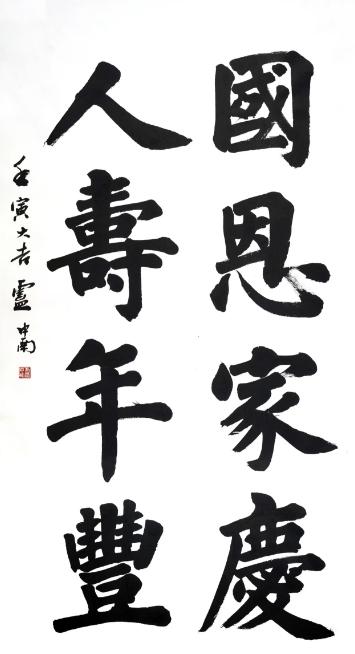 國恩家慶
人壽年豐
壬寅大吉盧中南